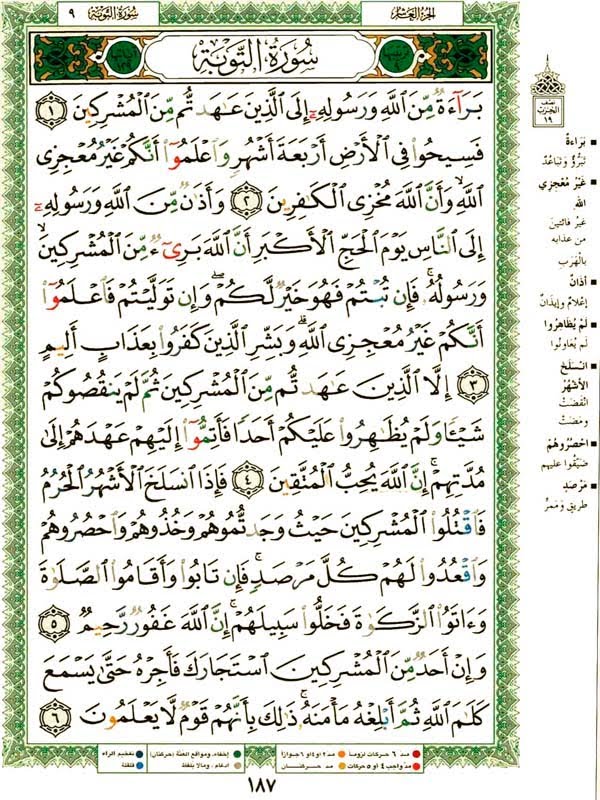 سُورَةُ التَّوْبَةِ ٩
الجزء العاشر
سُورَةُ التَّوْبَةِ
بَرَآءَةٌ مِّنَ ٱللَّهِ وَرَسُولِهِۦٓ إِلَى ٱلَّذِينَ عَٰهَدتُّم مِّنَ ٱلْمُشْرِكِينَ ١
فَسِيحُوا۟ فِى ٱلْأَرْضِ أَرْبَعَةَ أَشْهُرٍ وَٱعْلَمُوٓا۟ أَنَّكُمْ غَيْرُ مُعْجِزِى
ٱللَّهِ ۙ وَأَنَّ ٱللَّهَ مُخْزِى ٱلْكَٰفِرِينَ ٢ وَأَذَٰنٌ مِّنَ ٱللَّهِ وَرَسُولِهِۦٓ
إِلَى ٱلنَّاسِ يَوْمَ ٱلْحَجِّ ٱلْأَكْبَرِ أَنَّ ٱللَّهَ بَرِىٓءٌ مِّنَ ٱلْمُشْرِكِينَ ۙ
وَرَسُولُهُۥ ۚ فَإِن تُبْتُمْ فَهُوَ خَيْرٌ لَّكُمْ ۖ وَإِن تَوَلَّيْتُمْ فَٱعْلَمُوٓا۟
أَنَّكُمْ غَيْرُ مُعْجِزِى ٱللَّهِ ۗ وَبَشِّرِ ٱلَّذِينَ كَفَرُوا۟ بِعَذَابٍ أَلِيمٍ
٣ إِلَّا ٱلَّذِينَ عَٰهَدتُّم مِّنَ ٱلْمُشْرِكِينَ ثُمَّ لَمْ يَنقُصُوكُمْ
شَيْـًٔا وَلَمْ يُظَٰهِرُوا۟ عَلَيْكُمْ أَحَدًا فَأَتِمُّوٓا۟ إِلَيْهِمْ عَهْدَهُمْ إِلَىٰ
مُدَّتِهِمْ ۚ إِنَّ ٱللَّهَ يُحِبُّ ٱلْمُتَّقِينَ ٤ فَإِذَا ٱنسَلَخَ ٱلْأَشْهُرُ ٱلْحُرُمُ
فَٱقْتُلُوا۟ ٱلْمُشْرِكِينَ حَيْثُ وَجَدتُّمُوهُمْ وَخُذُوهُمْ وَٱحْصُرُوهُمْ
وَٱقْعُدُوا۟ لَهُمْ كُلَّ مَرْصَدٍ ۚ فَإِن تَابُوا۟ وَأَقَامُوا۟ ٱلصَّلَوٰةَ
وَءَاتَوُا۟ ٱلزَّكَوٰةَ فَخَلُّوا۟ سَبِيلَهُمْ ۚ إِنَّ ٱللَّهَ غَفُورٌ رَّحِيمٌ ٥
وَإِنْ أَحَدٌ مِّنَ ٱلْمُشْرِكِينَ ٱسْتَجَارَكَ فَأَجِرْهُ حَتَّىٰ يَسْمَعَ
كَلَٰمَ ٱللَّهِ ثُمَّ أَبْلِغْهُ مَأْمَنَهُۥ ۚ ذَٰلِكَ بِأَنَّهُمْ قَوْمٌ لَّا يَعْلَمُونَ ٦
نصف
الحزب
١٩
بَرَاءةٌ
تَبَرُّؤٌ وَتَبَاعُدٌ
غَيْرُ مُعْجِزِي
الله
غيرُ فائتين
من عذابه
بالْهَرَبِ
أَذَانٌ
إعْلامٌ وإيذانٌ
لَمْ يُظاهِرُوا
لَم يُعَاوِنُوا
انْسَلَخَ
الأشْهُرُ
انْقَضَتْ
ومَضَتْ
احْصُرُوهُمْ
ضَيِّقُوا عليهم
مَرْصَدٍ
طريقٍ وَمَمَرٍّ
مد ٦ حركات لزوماً
مد ٢ أو ٤ أو ٦ جوازاً
إخفاء، ومواقع الغنة (حركتان)
تفخيم الراء
مد واجب ٤ أو ٥ حركات
مد حركتان
ادغام، ومالا يلفظ
قلقلة
١٨٧